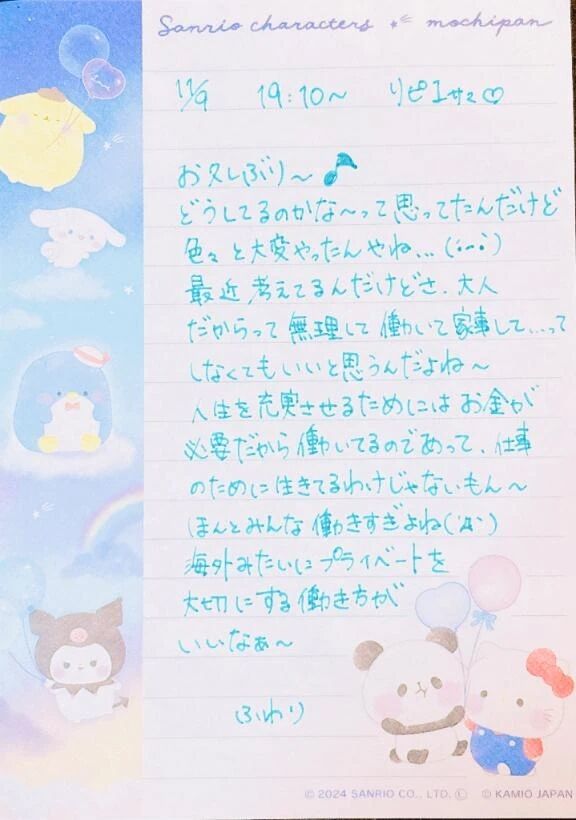 Sanrio characters mochipan
11/9 19:10～ リピエサマ♡
お久しぶり～♪
どうしてるのかな～って思ってたんだけど
色々と大変やったんやね…(;-;)
最近考えてるんだけどさ、大人
だからって無理して働いて家事して…って
しなくてもいいと思うんだよね～
人生を充実させるためにはお金が
必要だから働いてるのであって、仕事
のために生きてるわけじゃないもん～
ほんとみんな働きすぎよね(;´Д`)
海外みたいにプライベートを
大切にする働き方が
いいなぁ～
ふわり
© 2024 SANRIO CO., LTD. Ⓛ © KAMIO JAPAN